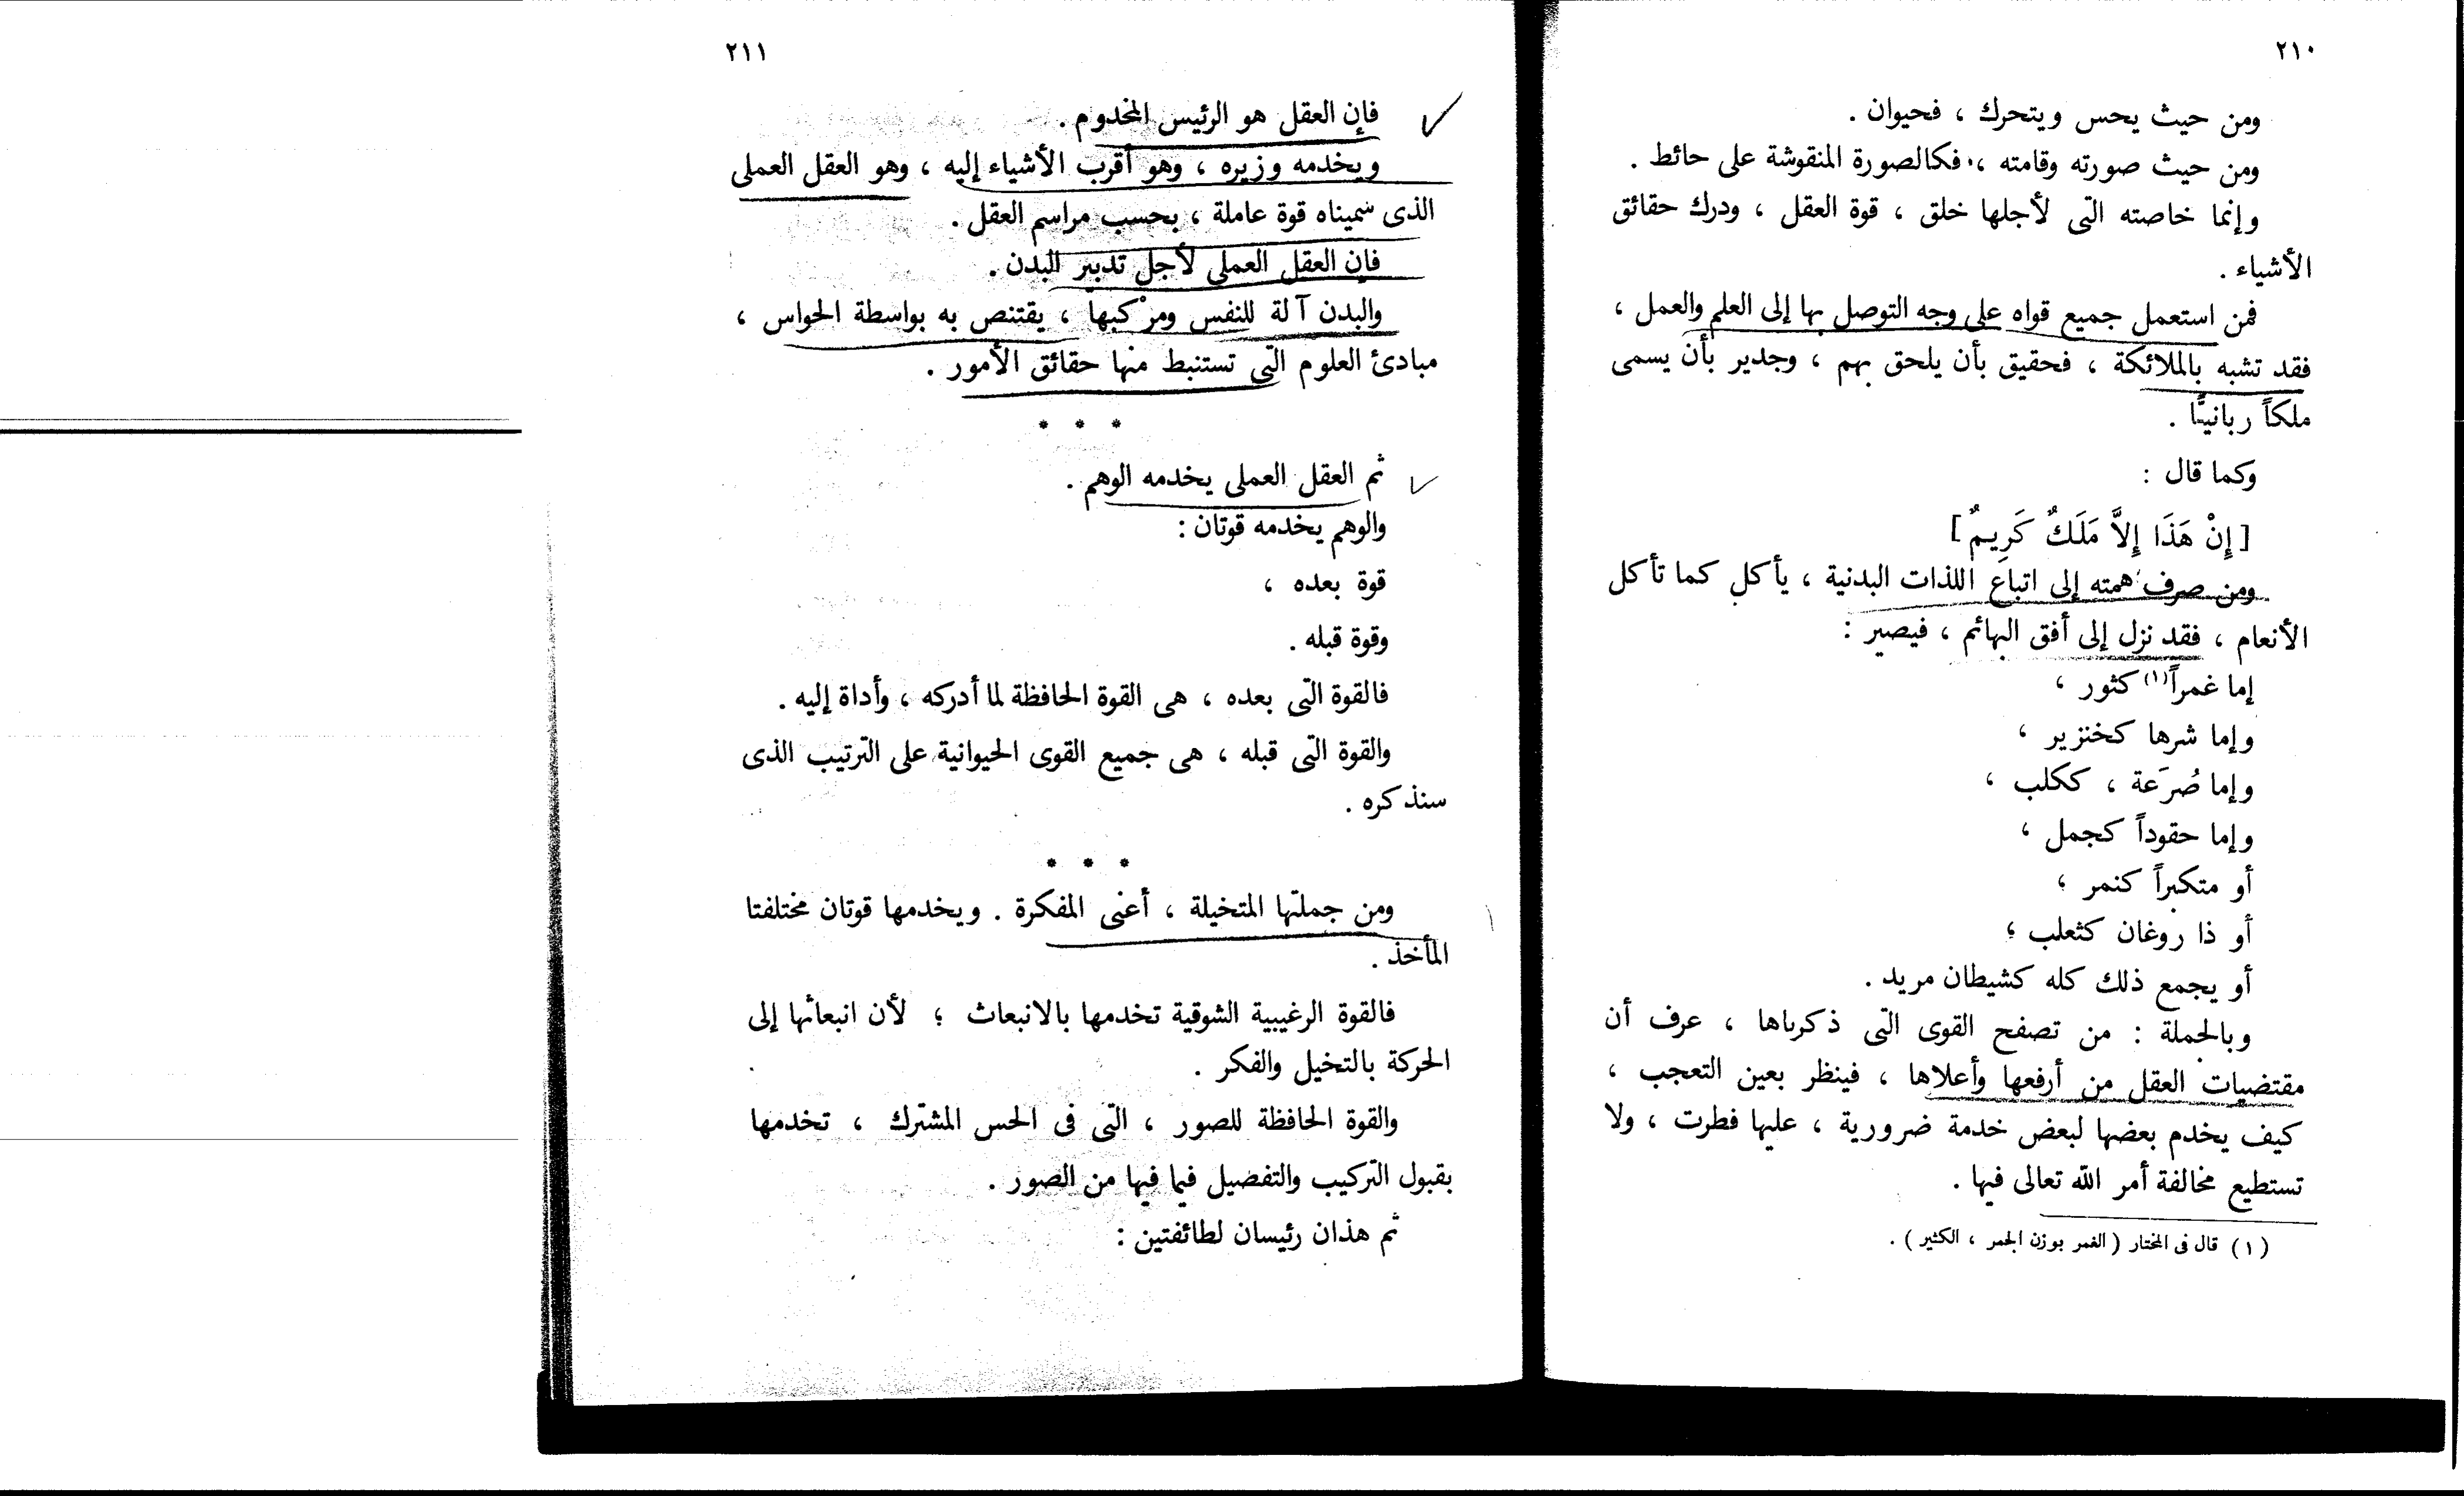 ٢١٠
ومن حيث يحس ويتحرك ، فحيوان .
ومن حيث صورته وقامته ، فكالصورة المنقوشة على حائط .
وإنما خاصته التى لأجلها خلق ، قوة العقل ، ودرك حقائق
الأشياء .
فمن استعمل جميع قواه على وجه التوصل بها إلى العلم والعمل ،
فقد تشبه بالملائكة ، فحقيق بأن يلحق بهم ، وجدير بأن يسمى
ملكاً ربانيًّا .
وكما قال :
[ إِنْ هَذَا إِلاَّ مَلَكٌ كَرِيمٌ ]
ومن صرف همته إلى اتباع اللذات البدنية ، يأكل كما تأكل
الأنعام ، فقد نزل إلى أفق البهائم ، فيصير :
إما غمراً(١) كثور ،
وإما شرها كخنزير ،
وإما صُرَعة ، ككلب ،
وإما حقوداً كجمل ،
أو متكبراً كنمر ،
أو ذا روغان كثعلب ،
أو يجمع ذلك كله كشيطان مريد .
وبالجملة : من تصفح القوى التى ذكرناها ، عرف أن
مقتضيات العقل من أرفعها وأعلاها ، فينظر بعين التعجب ،
كيف يخدم بعضها لبعض خدمة ضرورية ، عليها فطرت ، ولا
تستطيع مخالفة أمر الله تعالى فيها .
(١) قال فى المختار ( الغمر بوزن الجمر ، الكثير ) .
٢١١
فإن العقل هو الرئيس المخدوم .
ويخدمه وزيره ، وهو أقرب الأشياء إليه ، وهو العقل العملى
الذى سميناه قوة عاملة ، بحسب مراسم العقل .
فإن العقل العملى لأجل تدبير البدن .
والبدن آلة للنفس ومركبها ، يقتنص به بواسطة الحواس ،
مبادئ العلوم التى تستنبط منها حقائق الأمور .
* * *
ثم العقل العملى يخدمه الوهم .
والوهم يخدمه قوتان :
قوة بعده ،
وقوة قبله .
فالقوة التى بعده ، هى القوة الحافظة لما أدركه ، وأداة إليه .
والقوة التى قبله ، هى جميع القوى الحيوانية على الترتيب الذى
سنذكره .
* * *
ومن جملتها المتخيلة ، أعنى المفكرة . ويخدمها قوتان مختلفتا
المأخذ .
فالقوة الرغيبية الشوقية تخدمها بالانبعاث ؛ لأن انبعاثها إلى
الحركة بالتخيل والفكر .
والقوة الحافظة للصور ، التى فى الحس المشترك ، تخدمها
بقبول التركيب والتفصيل فيما فيها من الصور .
ثم هذان رئيسان لطائفتين :